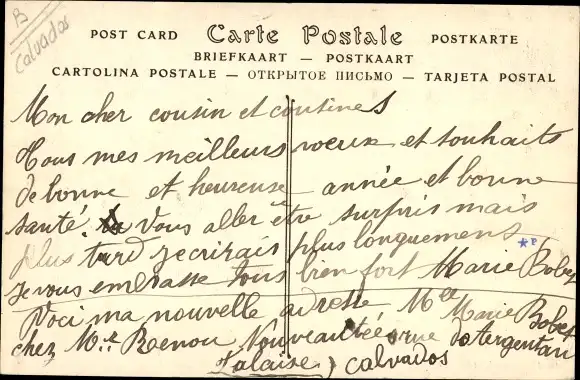 B
Calvados
POST CARD Carte Postale POSTKARTE
BRIEFKAART — POSTKAART
CARTOLINA POSTALE — ОТКРЫТОЕ ПИСЬМО — TARJETA POSTAL
Mon cher cousin et cousines
Tous mes meilleurs voeux et souhaits
de bonne et heureuse année et bonne
santé. Vous aller être surpris mais
plus tard jecrirais plus longuemens
Je vous embrasse tous bien fort Marie Bobey
Voci ma nouvelle adresse Mlle Marie Bobey
chez Mr Renou Nouveautée rue d'Argentan
Falaise, Calvados